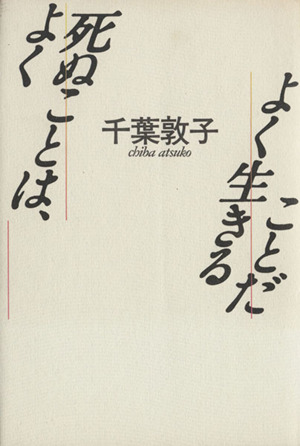 よく
死ぬことは、
よく生きる
ことだ
千葉敦子
chiba atsuko